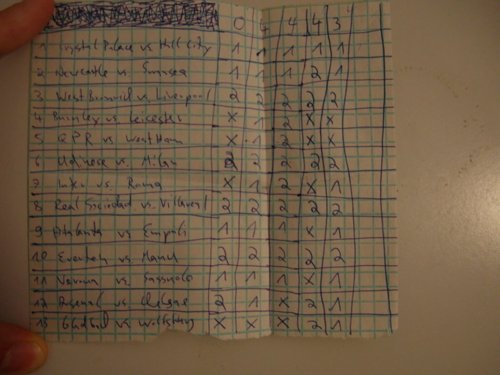 0 4 4 4 3
1 Crystal Palace vs Hull City 1 1 1 1 1
2 Newcastle vs. Swansea 1 1 1 2 1
3 West Bromwich vs. Liverpool 2 2 2 2 2
4 Burnley vs Leicester X 1 2 X X
5 QPR vs West Ham X 1 2 X X
6 Udinese vs. Milan 2 2 2 2 2
7 Inter vs. Roma X 1 2 X 1
8 Real Sociedad vs. Villareal 2 2 2 2 2
9 Atalanta vs Empoli 1 1 1 X 1
10 Everton vs Manu 2 2 2 2 2
11 Verona vs. Sassuolo 1 1 1 X 1
12 Arsenal vs. Chelsea 2 1 X 2 1
13 vs X X X 2 1